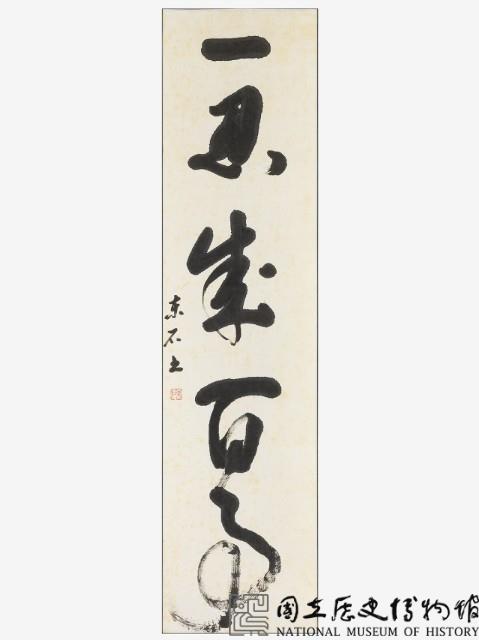 一忍成百事
東石書
國立歷史博物館
NATIONAL MUSEUM OF HISTORY